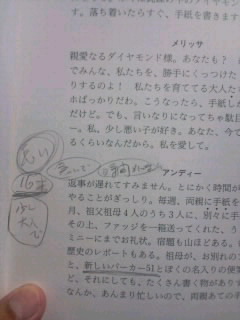 す。落ち着いたらすぐ、手紙を書きます
メリッサ
親愛なるダイヤモンド様。あなたも?
でみんな、私たちを、勝手にくっつけた
りするのよ! 私たちを育ててる大人た
ホばっかりだわ。こうなったら、手紙し
だけど。でも、言いなりになってちゃ駄目
ー。私、少し悪い子が好き。あなた、今で
るくらいなんだから。私を愛して。
アンディー
返事が遅れてすみません。とにかく時間が
やることがぎっしり。毎週、両親に手紙を
月、祖父祖母4人のうち3人に、別々に手
その上、ファッジを一箱送ってくれた、う
ミニーにまでお礼状。宿題も山ほどある。
歴史のレポートもある。祖母が、お別れの
と、新しいパーカー51とぼくの名入りの便
ど、それにしても、たくさん書く物がありす
なんか、あんまり忙しいので、両親あての手
15才
少し
大人